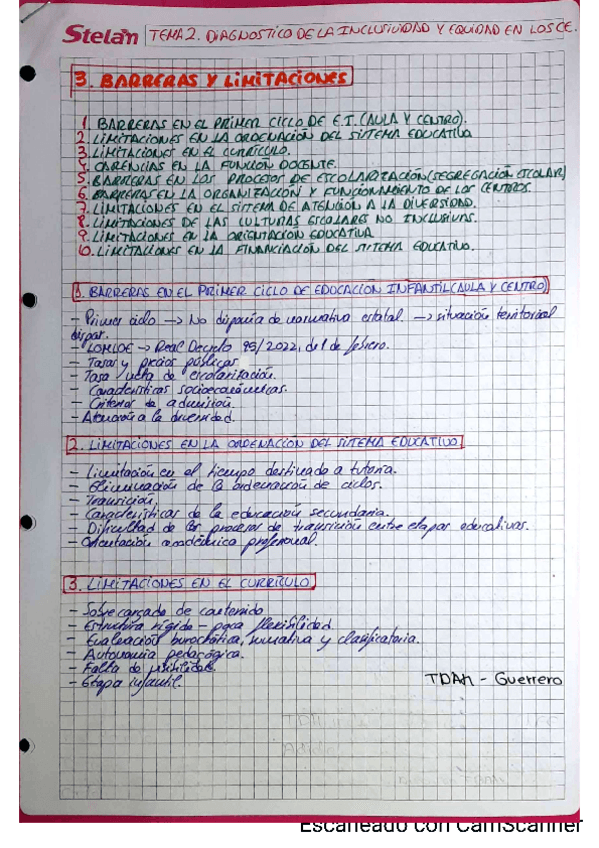 Stelan TEMA 2. DIAGNOSTICO DE LA INCLUSIVIDAD Y EQUIDAD EN LOS CE.
3. BARRERAS Y LIMITACIONES
1. BARRERAS EN EL PRIMER CICLO DE E.I. (AULA Y CENTRO).
2. LIMITACIONES EN LA ORDENACIÓN DEL SISTEMA EDUCATIVO
3. LIMITACIONES EN EL CURRÍCULO.
4. CARENCIAS EN LA FUNCIÓN DOCENTE.
5. BARRERAS EN LOS PROCESOS DE ESCOLARIZACIÓN (SEGREGACIÓN ESCOLAR)
6. BARRERAS EN LA ORGANIZACIÓN Y FUNCIONAMIENTO DE LOS CENTROS.
7. LIMITACIONES EN EL SISTEMA DE ATENCIÓN A LA DIVERSIDAD.
8. LIMITACIONES DE LAS CULTURAS ESCOLARES NO INCLUSIVAS.
9. LIMITACIONES EN LA ORIENTACIÓN EDUCATIVA
10. LIMITACIONES EN LA FINANCIACIÓN DEL SISTEMA EDUCATIVO.
1. BARRERAS EN EL PRIMER CICLO DE EDUCACIÓN INFANTIL (AULA Y CENTRO)
- Primer ciclo → No disponía de normativa estatal. → situación territorial
dispar.
- LOMLOE → Real Decreto 95/2022, del 1 de febrero.
- Tasas y precios públicos.
- Tasa neta de escolarización.
- Características socioeconómicas.
- Criterios de admisión.
- Atención a la diversidad.
2. LIMITACIONES EN LA ORDENACIÓN DEL SISTEMA EDUCATIVO
- Limitación en el tiempo destinado a tutoría.
- Eliminación de la ordenación de ciclos.
- Transición.
- Características de la educación secundaria.
- Dificultad de los procesos de transición entre etapas educativas.
- Orientación académica profesional.
3. LIMITACIONES EN EL CURRÍCULO
- Sobrecargado de contenido
- Estructura rígida - poca flexibilidad
- Evaluación burocrática, sumativa y clasificatoria.
- Autonomía pedagógica.
- Falta de
- Etapa infantil.
TDAH - Guerrero
Escaneado con CamScanner